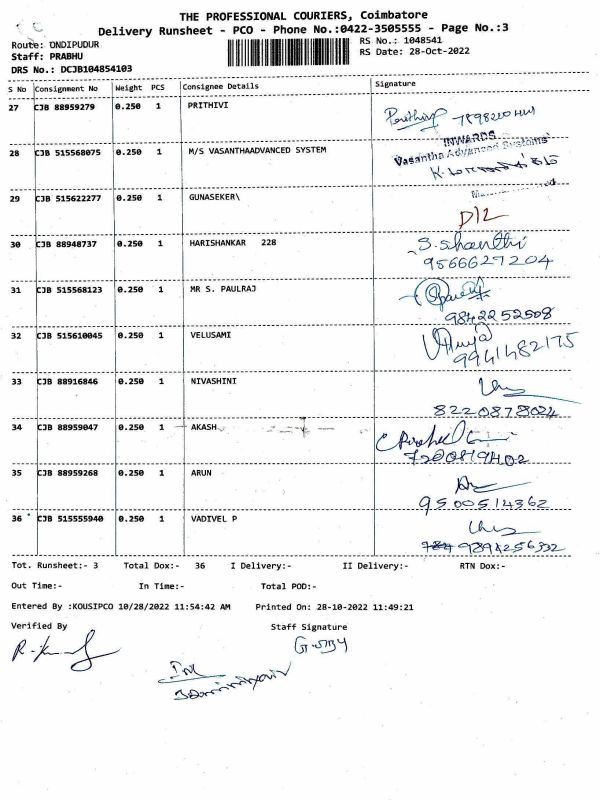 THE PROFESSIONAL COURIERS, Coimbatore
Delivery Runsheet - PCO - Phone No.:0422-3505555 - Page No.:3
Route: ONDIPUDUR
RS No.: 1048541
Staff: PRABHU
RS Date: 28-Oct-2022
DRS No.: DCJB104854103
S No Consignment No Weight PCS Consignee Details Signature
27 CJB 88959279 0.250 1 PRITHIVI
INWARDS
28 CJB 515568075 0.250 1 M/S VASANTHAADVANCED SYSTEM Vasantha Advanced Systems
29 CJB 515622277 0.250 1 GUNASEKER\
D12
30 CJB 88948737 0.250 1 HARISHANKAR 228 S. Shanthi
9566627204
31 CJB 515568123 0.250 1 MR S. PAULRAJ
9842252508
32 CJB 515610045 0.250 1 VELUSAMI
9941482175
33 CJB 88916846 0.250 1 NIVASHINI
8220878024
34 CJB 88959047 0.250 1 AKASH
7200819402
35 CJB 88959268 0.250 1 ARUN
9500514362
36 CJB 515555940 0.250 1 VADIVEL P
9894256332
Tot. Runsheet:- 3 Total Dox:- 36 I Delivery:- II Delivery:- RTN Dox:-
Out Time:- In Time:- Total POD:-
Entered By :KOUSIPCO 10/28/2022 11:54:42 AM Printed On: 28-10-2022 11:49:21
Verified By Staff Signature